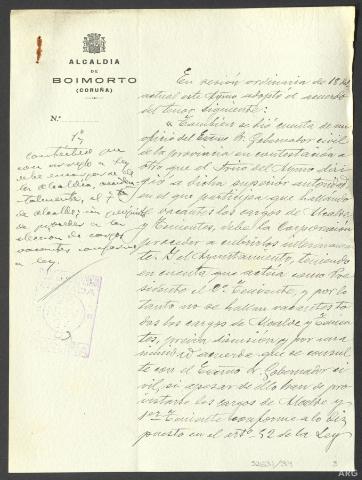 ALCALDÍA
DE
BOIMORTO
(CORUÑA)
N.º
En sesión ordinaria de 18 del
actual este Aymo adoptó el acuerdo
del tenor siguiente:
"También se dió cuenta de un
oficio del Exmo Sr. Gobernador civil
de la provincia en contestación a
otro que el Señor del Aymo diri
gió a dicha superior autoridad
en el que participa que hallándose
vacantes los cargos de Alcalde
y Tenientes, debe la Corporación
proceder a cubrirlos interinamen
te. El Ayuntamiento, teniendo
en cuenta que actúa como Pre
sidente el 2º Teniente, y por lo
tanto no se hallan vacantes to
dos los cargos de Alcalde y Tenien
tes, previa discusión y por una
nimidad acuerda que se consul
te con el Excmo Sr. Gobernador ci
vil, si apesar de ello han de pro
veerse los cargos de Alcalde y
1er Teniente conforme a lo dis
puesto en el artº 52 de la Ley
1º
contestese que
con arreglo a Ley
debe encargarse de
la alcaldía, acciden
talmente, el 2º
de alcalde, sin perjuicio
de proceder a la
elección de cargos
vacantes conforme
a ley.
3
ARG